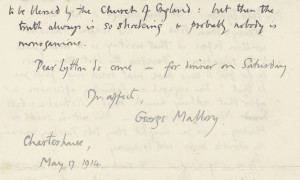 to be blessed by the Church of England : but then the
truth always is so shocking & probably nobody is
monogamous.
Dear Lytton do come – for dinner on Saturday
In affect,
George Mallory.
Charterhouse,
May 17. 1914.